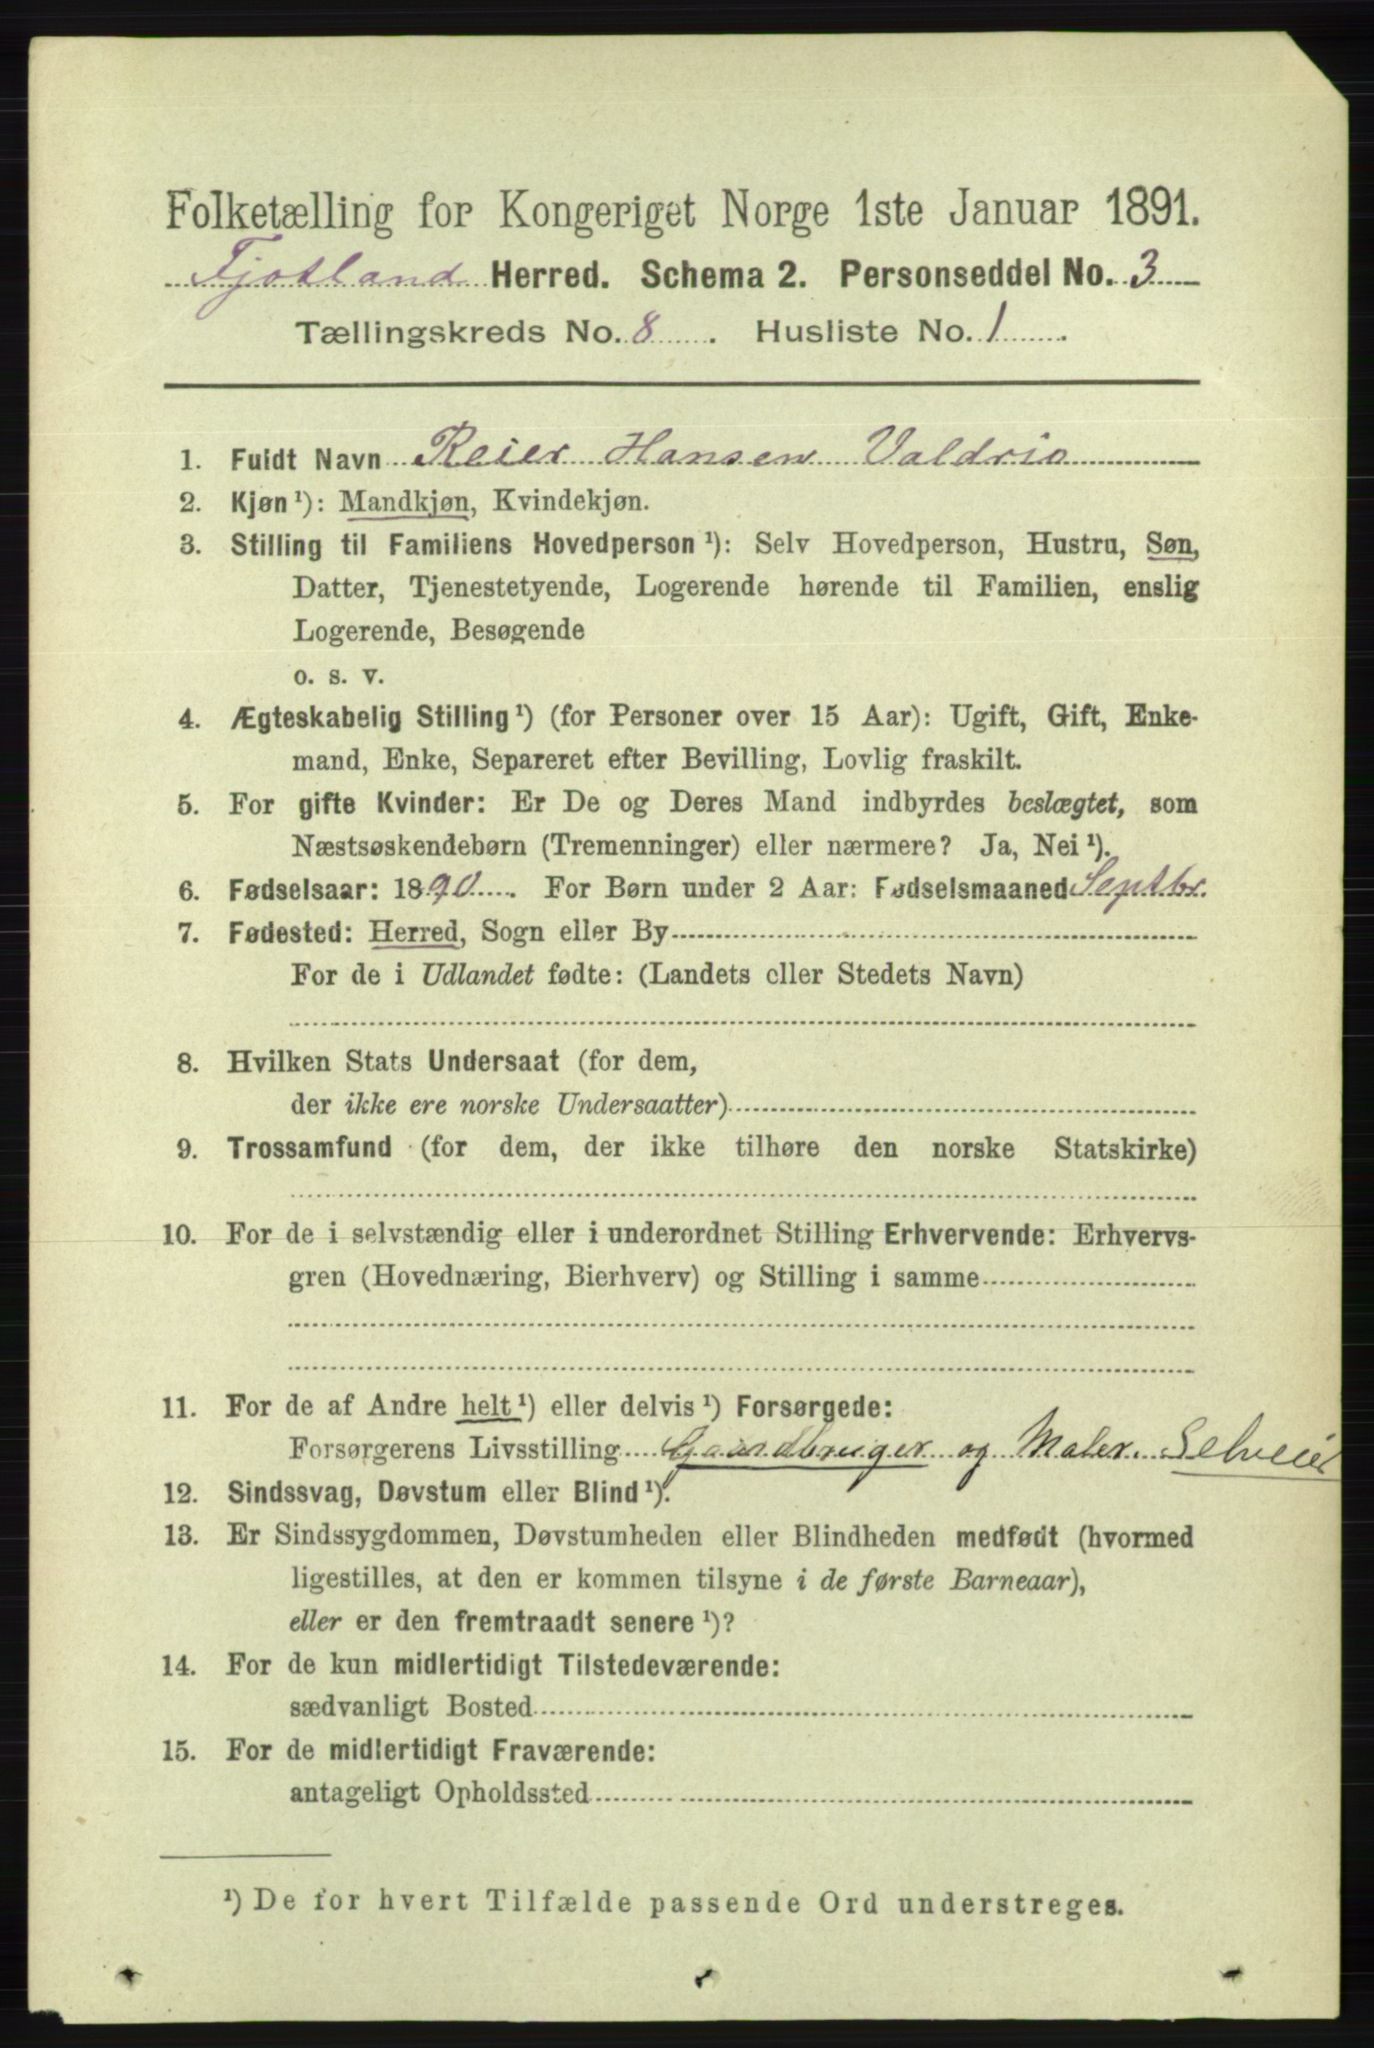 Folketælling for Kongeriget Norge 1ste Januar 1891.
Fjotland Herred. Schema 2. Personseddel No. 3
Tællingskreds No. 8. Husliste No. 1.
1. Fuldt Navn Reier Hansen Valdrio
2. Kjøn ¹): Mandkjøn, Kvindekjøn.
3. Stilling til Familiens Hovedperson ¹): Selv Hovedperson, Hustru, Søn,
Datter, Tjenestetyende, Logerende hørende til Familien, enslig
Logerende, Besøgende
o. s. v.
4. Ægteskabelig Stilling ¹) (for Personer over 15 Aar): Ugift, Gift, Enke-
mand, Enke, Separeret efter Bevilling, Lovlig fraskilt.
5. For gifte Kvinder: Er De og Deres Mand indbyrdes beslægtet, som
Næstsøskendebørn (Tremenninger) eller nærmere? Ja, Nei ¹).
6. Fødselsaar: 1890. For Børn under 2 Aar: Fødselsmaaned Septbr.
7. Fødested: Herred, Sogn eller By
For de i Udlandet fødte: (Landets eller Stedets Navn)
8. Hvilken Stats Undersaat (for dem,
der ikke ere norske Undersaatter)
9. Trossamfund (for dem, der ikke tilhøre den norske Statskirke)
10. For de i selvstændig eller i underordnet Stilling Erhvervende: Erhvervs-
gren (Hovednæring, Bierhverv) og Stilling i samme
11. For de af Andre helt ¹) eller delvis ¹) Forsørgede:
Forsørgerens Livsstilling Gaardbruger og Maler. Selveier
12. Sindssvag, Døvstum eller Blind ¹).
13. Er Sindssygdommen, Døvstumheden eller Blindheden medfødt (hvormed
ligestilles, at den er kommen tilsyne i de første Barneaar),
eller er den fremtraadt senere ¹)?
14. For de kun midlertidigt Tilstedeværende:
sædvanligt Bosted
15. For de midlertidigt Fraværende:
antageligt Opholdssted
¹) De for hvert Tilfælde passende Ord understreges.